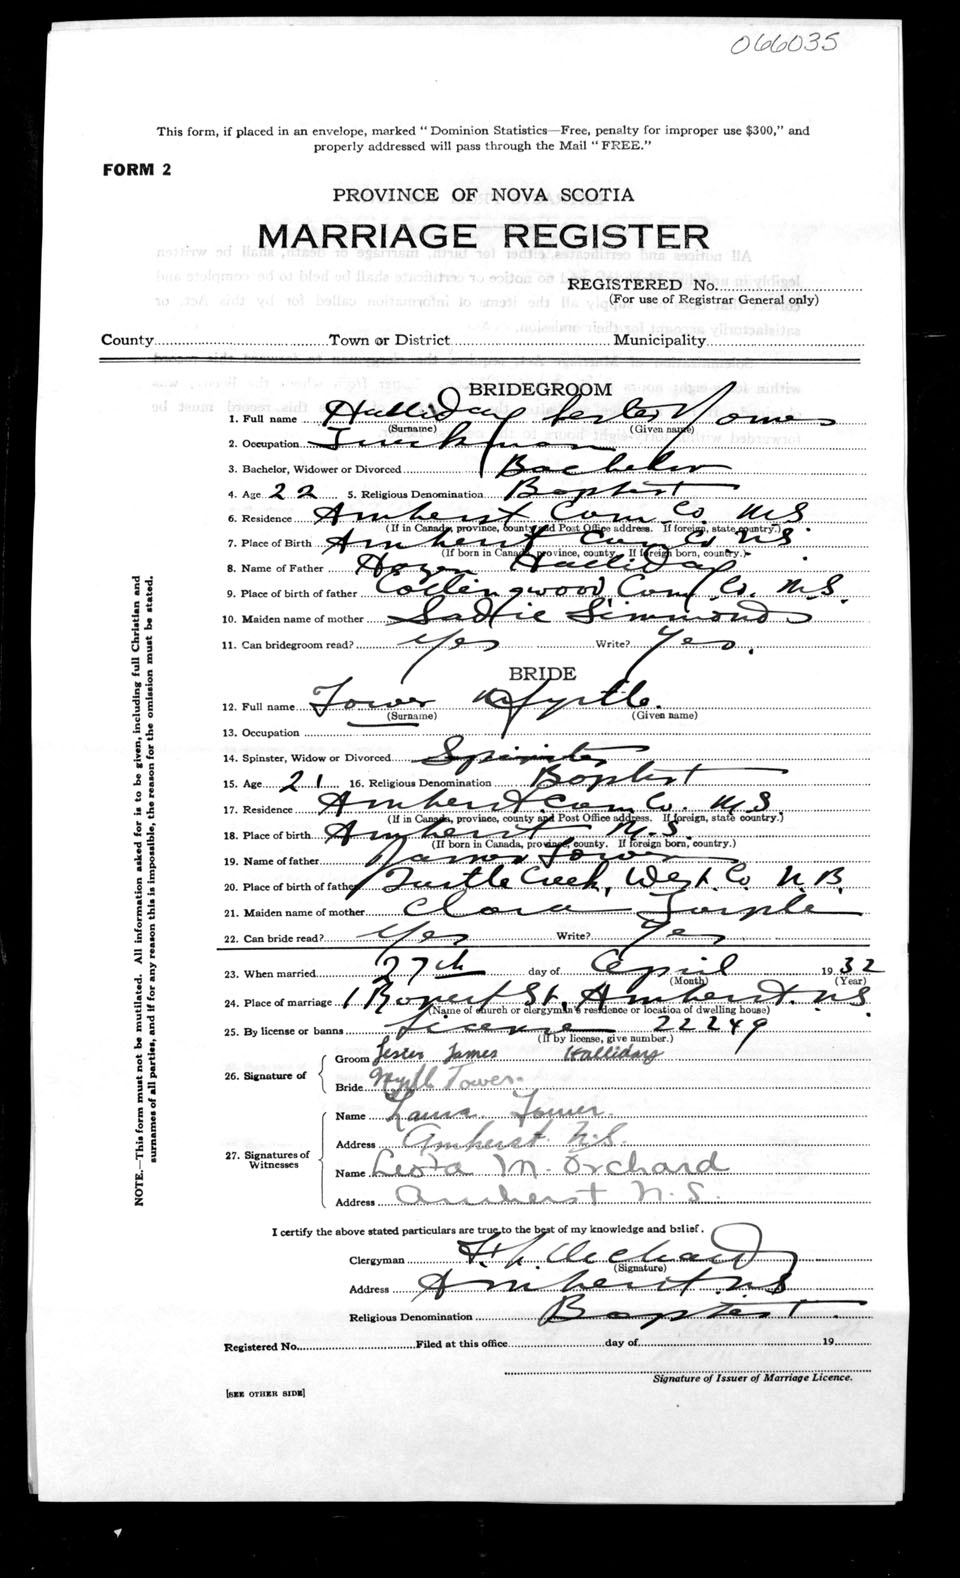 066035
This form, if placed in an envelope, marked "Dominion Statistics—Free, penalty for improper use $300," and
properly addressed will pass through the Mail "FREE."
FORM 2
PROVINCE OF NOVA SCOTIA
MARRIAGE REGISTER
REGISTERED No.
(For use of Registrar General only)
County Town or District Municipality
BRIDEGROOM
1. Full name Halliday Lester James
(Surname) (Given name)
2. Occupation Truckman
3. Bachelor, Widower or Divorced Bachelor
4. Age 22 5. Religious Denomination Baptist
6. Residence Amherst Cum. Co. N.S.
(If in Canada, province, county and Post Office address. If foreign, state country.)
7. Place of Birth Amherst Cum Co N.S.
(If born in Canada, province, county. If foreign born, country.)
8. Name of Father Hazen Halliday
9. Place of birth of father Collingwood Cum. Co. N.S.
10. Maiden name of mother Sadie Simmonds
11. Can bridegroom read? Yes Write? Yes.
BRIDE
12. Full name Tower Myrtle.
(Surname) (Given name)
13. Occupation
14. Spinster, Widow or Divorced Spinster
15. Age 21 16. Religious Denomination Baptist
17. Residence Amherst Cum Co. N.S
(If in Canada, province, county and Post Office address. If foreign, state country.)
18. Place of birth Amherst N.S.
(If born in Canada, province, county. If foreign born, country.)
19. Name of father James Tower
20. Place of birth of father Turtle Creek, West. Co. N.B.
21. Maiden name of mother Clara
22. Can bride read? Yes Write? Yes
23. When married 27th day of April 1932
(Month) (Year)
24. Place of marriage 1 Rupert St. Amherst. N.S
(Name of church or clergyman's residence or location of dwelling house)
25. By license or banns License 22249
(If by license, give number.)
26. Signature of
Groom Lester James Halliday
Bride Myrtle Tower.
27. Signatures of Witnesses
Name Laura Tower.
Address Amherst N.S.
Name Leota M. Orchard
Address Amherst N.S.
I certify the above stated particulars are true to the best of my knowledge and belief.
Clergyman Orchard
(Signature)
Address Amherst N.S
Religious Denomination Baptist.
Registered No. Filed at this office day of 19
Signature of Issuer of Marriage Licence.
[SEE OTHER SIDE]
NOTE.—This form must not be mutilated. All information asked for is to be given, including full Christian and
surnames of all parties, and if for any reason this is impossible, the reason for the omission must be stated.